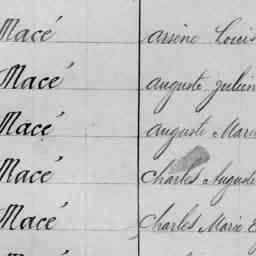 Macé arsène Louis
Macé auguste Julien
Macé auguste Marie
Macé Charles Auguste
Macé Charles Marie